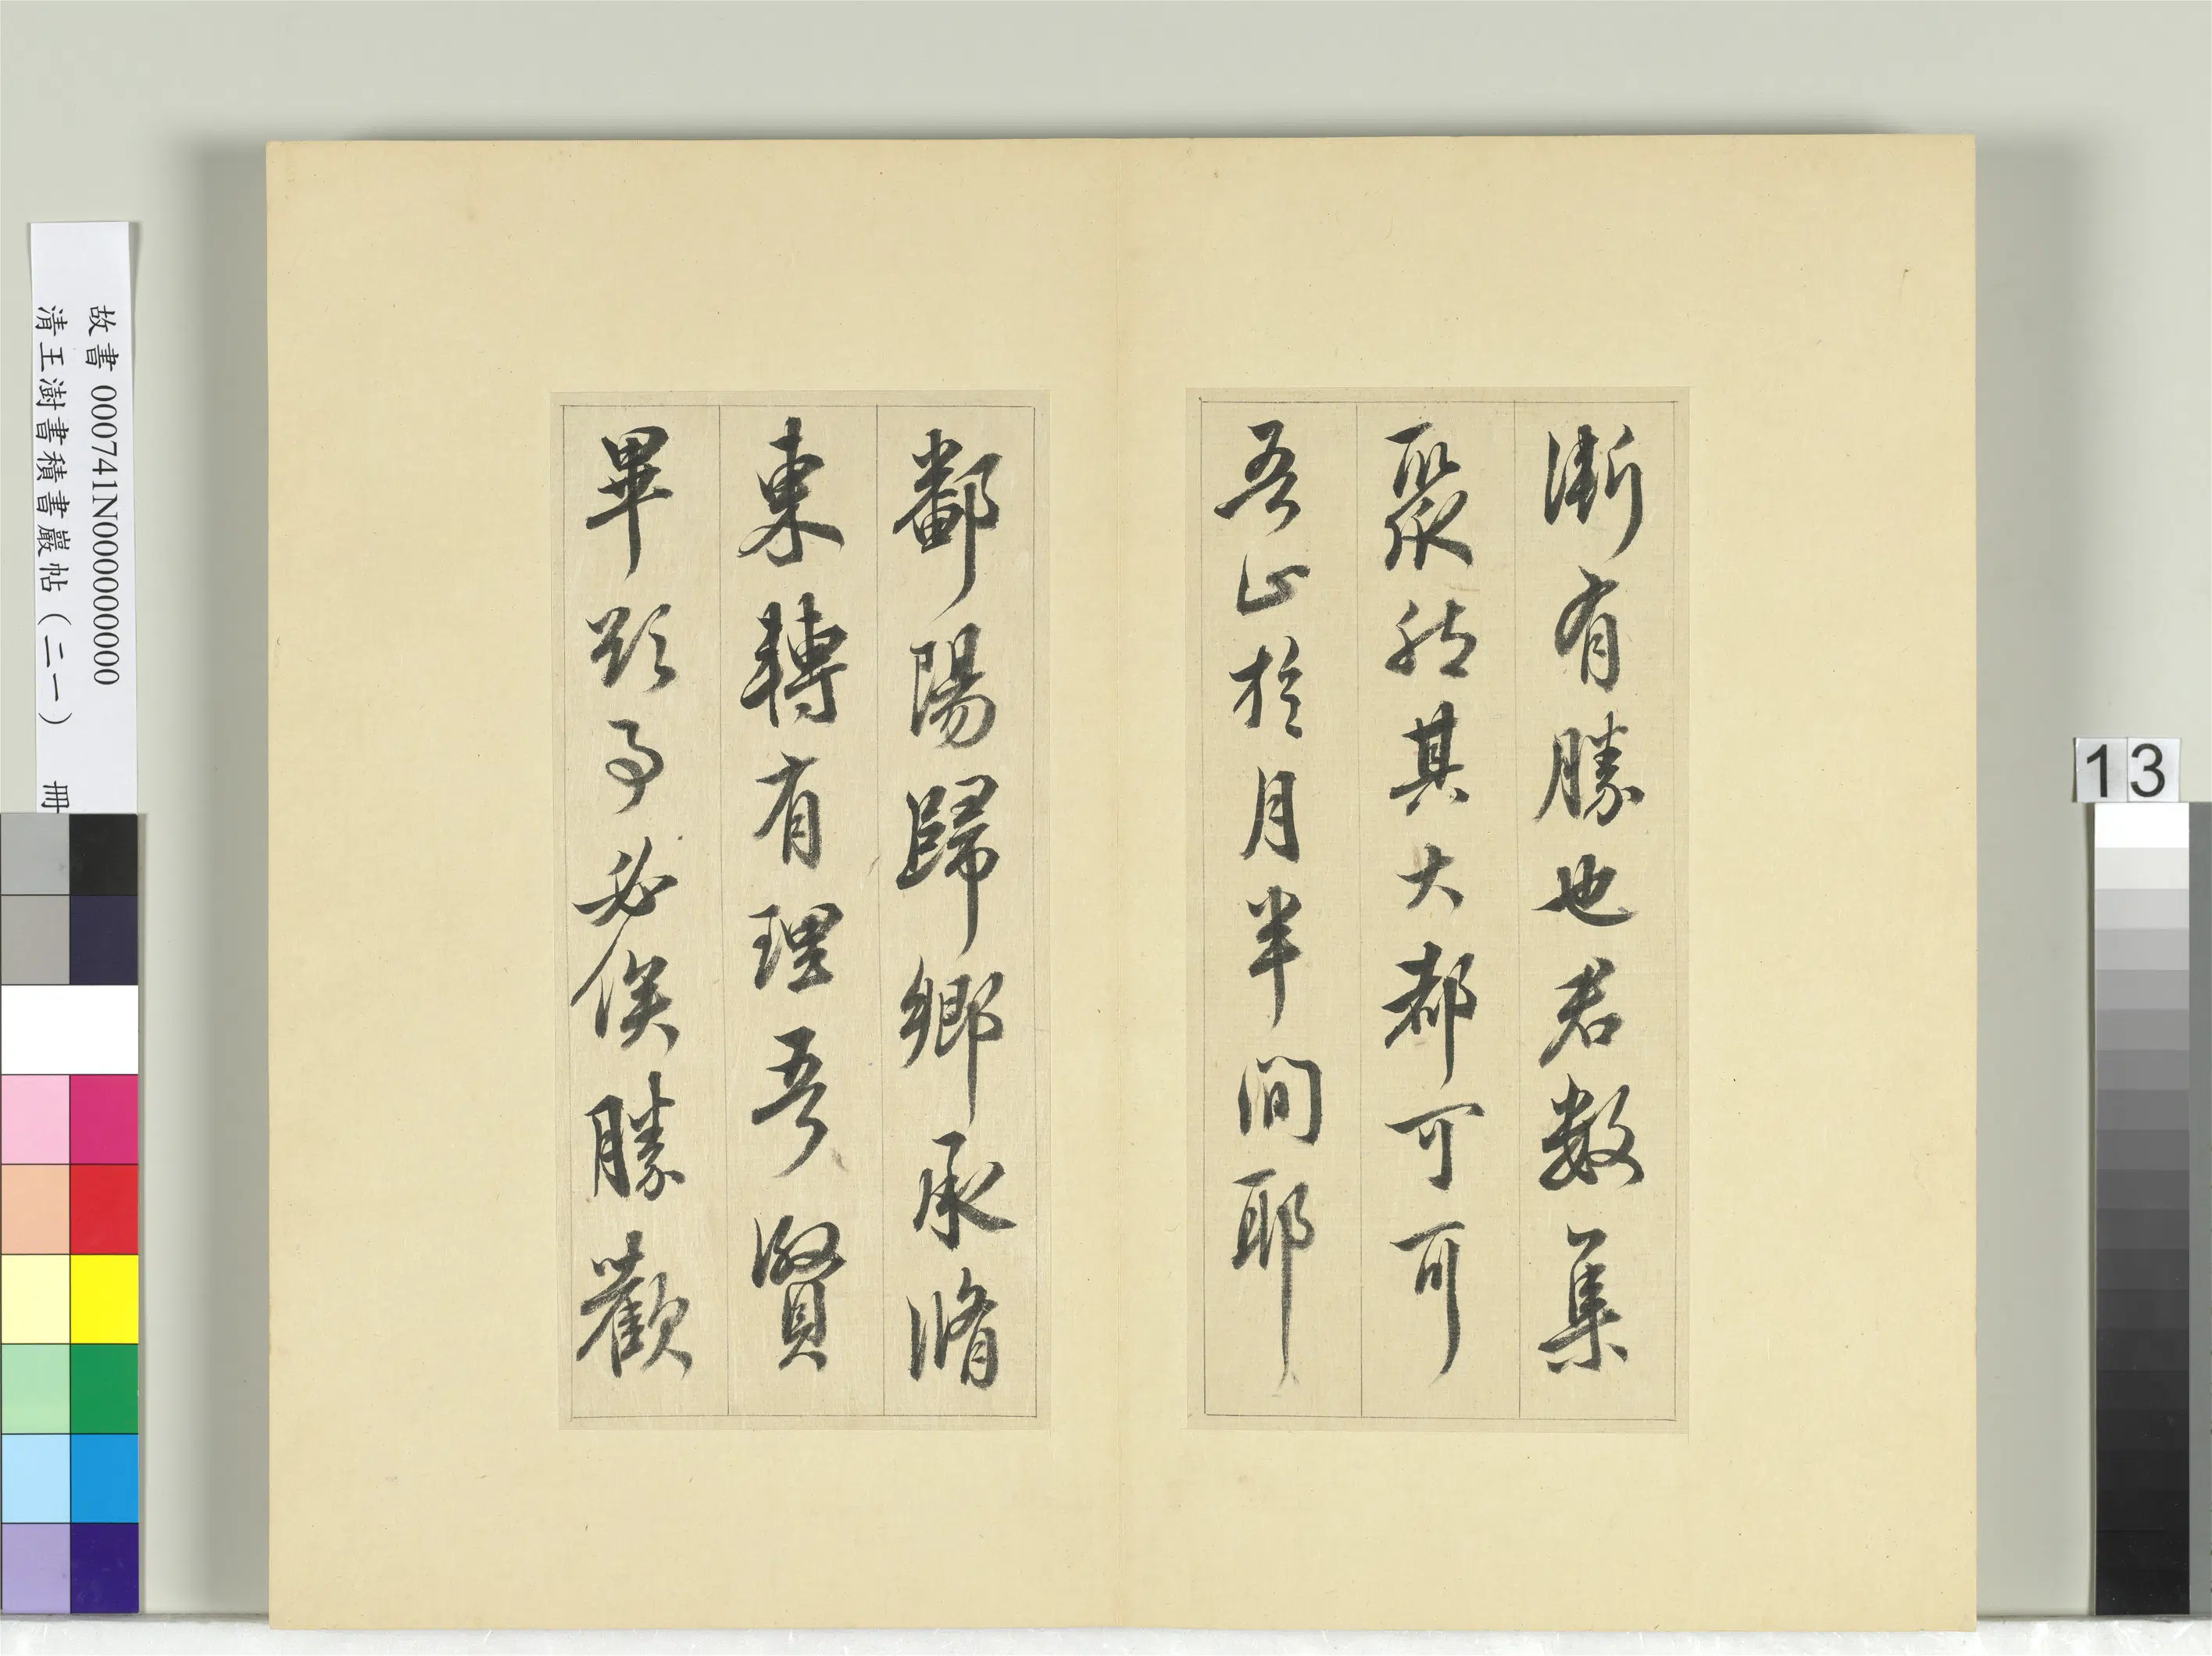 漸有勝也君數集
聚其大都可可
吾正於月半間耶
鄱陽歸鄉承脩
東轉有理吾賢
畢欲事必俟勝歡
故書 000741N000000000
清王澍書積書巖帖（二一） 冊
13